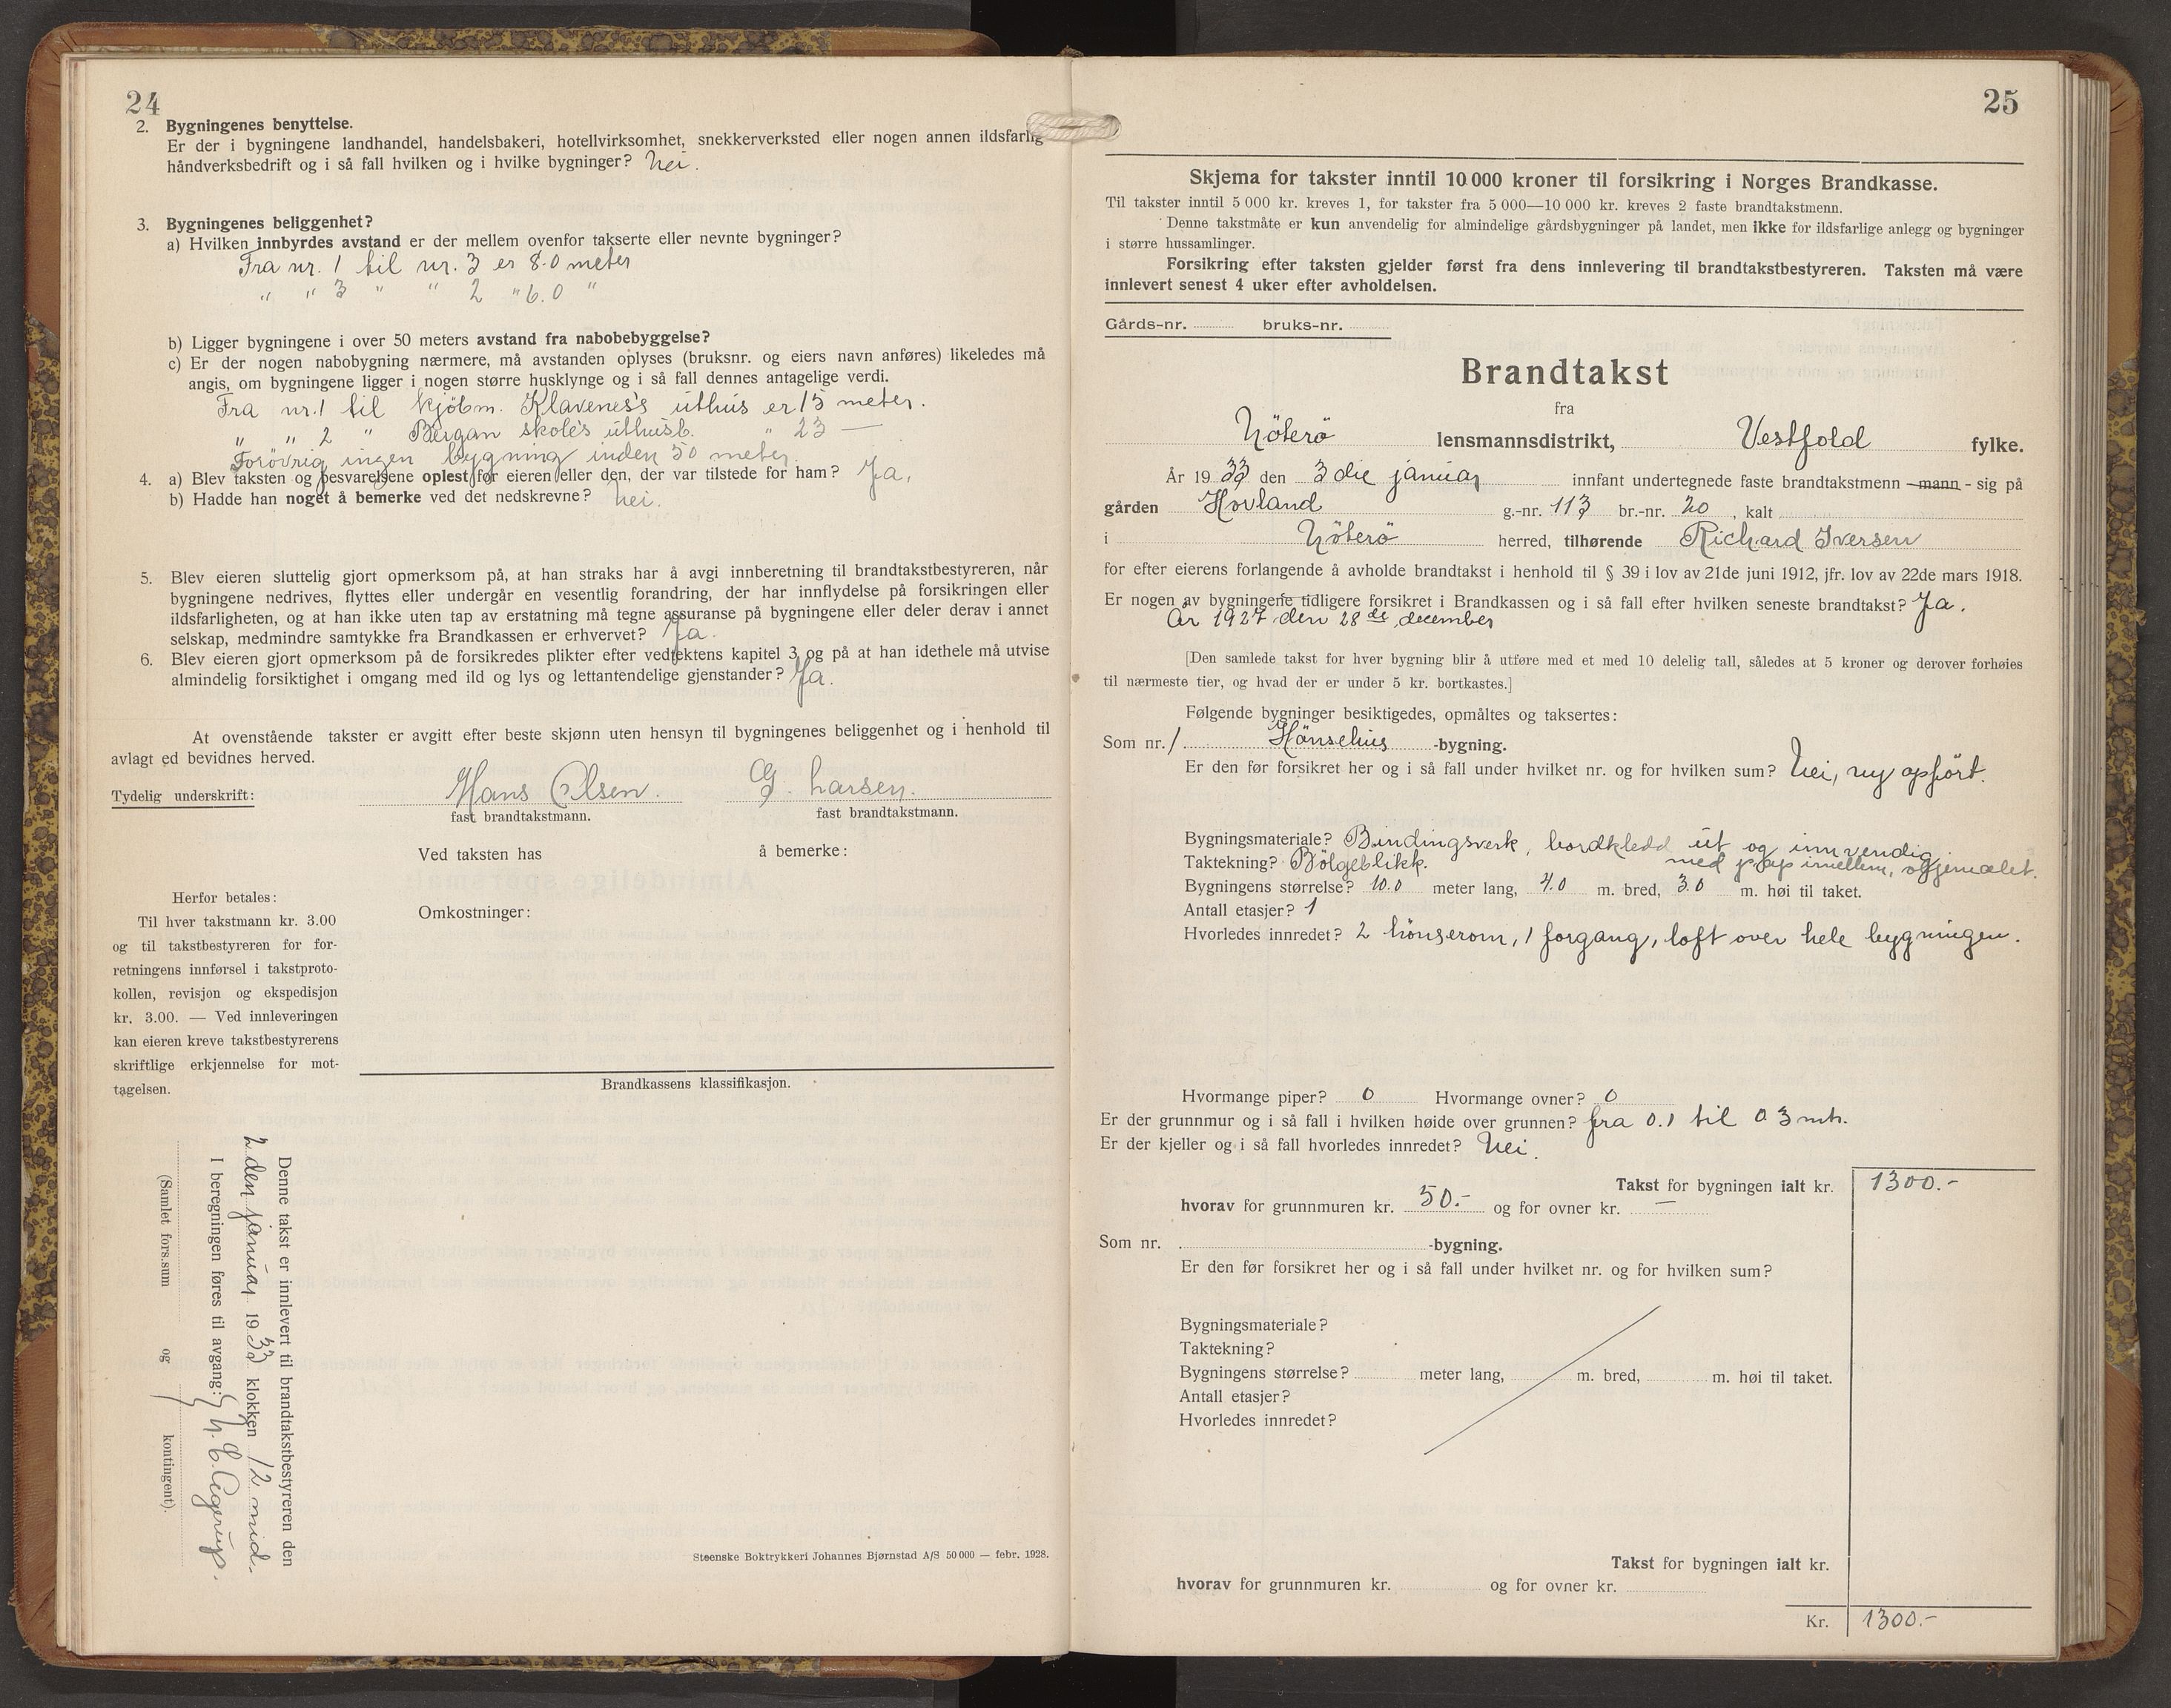 24
2. Bygningenes benyttelse.
Er der i bygningene landhandel, handelsbakeri, hotellvirksomhet, snekkerverksted eller nogen annen ildsfarlig
håndverksbedrift og i så fall hvilken og i hvilke bygninger? Nei.
3. Bygningenes beliggenhet?
a) Hvilken innbyrdes avstand er der mellem ovenfor takserte eller nevnte bygninger?
Fra nr. 1 til nr. 3 er 8.0 meter
" " 3 " " 2 " 6.0 "
b) Ligger bygningene i over 50 meters avstand fra nabobebyggelse?
c) Er der nogen nabobygning nærmere, må avstanden oplyses (bruksnr. og eiers navn anføres) likeledes må
angis, om bygningene ligger i nogen større husklynge og i så fall dennes antagelige verdi.
Fra nr. 1 til kjöbm. Klaveness's uthus er 15 meter.
" " 2 " Bergan skole's uthusb. " 23 —
Forövrig ingen bygning inden 50 meter.
4. a) Blev taksten og besvarelsene oplest for eieren eller den, der var tilstede for ham? Ja.
b) Hadde han noget å bemerke ved det nedskrevne? Nei.
5. Blev eieren sluttelig gjort opmerksom på, at han straks har å avgi innberetning til brandtakstbestyreren, når
bygningene nedrives, flyttes eller undergår en vesentlig forandring, der har innflydelse på forsikringen eller
ildsfarligheten, og at han ikke uten tap av erstatning må tegne assuranse på bygningene eller deler derav i annet
selskap, medmindre samtykke fra Brandkassen er erhvervet? Ja.
6. Blev eieren gjort opmerksom på de forsikredes plikter efter vedtektens kapitel 3 og på at han idethele må utvise
almindelig forsiktighet i omgang med ild og lys og lettantendelige gjenstander? Ja.
At ovenstående takster er avgitt efter beste skjønn uten hensyn til bygningenes beliggenhet og i henhold til
avlagt ed bevidnes herved.
Tydelig underskrift: Hans Olsen. G. Larsen.
fast brandtakstmann. fast brandtakstmann.
Ved taksten has å bemerke:
Omkostninger:
Herfor betales:
Til hver takstmann kr. 3.00
og til takstbestyreren for for-
retningens innførsel i takstproto-
kollen, revisjon og ekspedisjon
kr. 3.00. — Ved innleveringen
kan eieren kreve takstbestyrerens
skriftlige erkjennelse for mot-
tagelsen.
Brandkassens klassifikasjon.
Denne takst er innlevert til brandtakstbestyreren den
2 den januar 1933 klokken 12 mid.
I beregningen føres til avgang:
(Samlet fors.sum og kontingent).
Steenske Boktrykkeri Johannes Bjørnstad A/S 50 000 — febr. 1928.
25
Skjema for takster inntil 10 000 kroner til forsikring i Norges Brandkasse.
Til takster inntil 5 000 kr. kreves 1, for takster fra 5 000—10 000 kr. kreves 2 faste brandtakstmenn.
Denne takstmåte er kun anvendelig for almindelige gårdsbygninger på landet, men ikke for ildsfarlige anlegg og bygninger
i større hussamlinger.
Forsikring efter taksten gjelder først fra dens innlevering til brandtakstbestyreren. Taksten må være
innlevert senest 4 uker efter avholdelsen.
Gårds-nr. bruks-nr.
Brandtakst
fra
Nöterö lensmannsdistrikt, Vestfold fylke.
År 1933 den 3 die januar innfant undertegnede faste brandtakstmenn - mann - sig på
gården Hovland g.-nr. 113 br.-nr. 20, kalt
i Nöterö herred, tilhørende Richard Iversen
for efter eierens forlangende å avholde brandtakst i henhold til § 39 i lov av 21de juni 1912, jfr. lov av 22de mars 1918.
Er nogen av bygningene tidligere forsikret i Brandkassen og i så fall efter hvilken seneste brandtakst? Ja.
År 1927 den 28 de december
[Den samlede takst for hver bygning blir å utføre med et med 10 delelig tall, således at 5 kroner og derover forhøies
til nærmeste tier, og hvad der er under 5 kr. bortkastes.]
Følgende bygninger besiktigedes, opmåltes og taksertes:
Som nr. 1 Hönsehus -bygning.
Er den før forsikret her og i så fall under hvilket nr. og for hvilken sum? Nei, ny opfört.
Bygningsmateriale? Bindingsverk, bordkledd ut og innvendig
med pap imellem, og gjemalet.
Taktekning? Bölgeblikk.
Bygningens størrelse? 10.0 meter lang, 4.0 m. bred, 3.0 m. høi til taket.
Antall etasjer? 1
Hvorledes innredet? 2 hönserom, 1 forgang, loft over hele bygningen.
Hvormange piper? 0 Hvormange ovner? 0
Er der grunnmur og i så fall i hvilken høide over grunnen? fra 0.1 til 0.3 mtr.
Er der kjeller og i så fall hvorledes innredet? Nei.
Takst for bygningen ialt kr. 1300.-
hvorav for grunnmuren kr. 50.- og for ovner kr. —
Som nr. -bygning.
Er den før forsikret her og i så fall under hvilket nr. og for hvilken sum?
Bygningsmateriale?
Taktekning?
Bygningens størrelse? meter lang, m. bred, m. høi til taket.
Antall etasjer?
Hvorledes innredet?
Takst for bygningen ialt kr.
hvorav for grunnmuren kr. og for ovner kr.
Kr. 1300.-